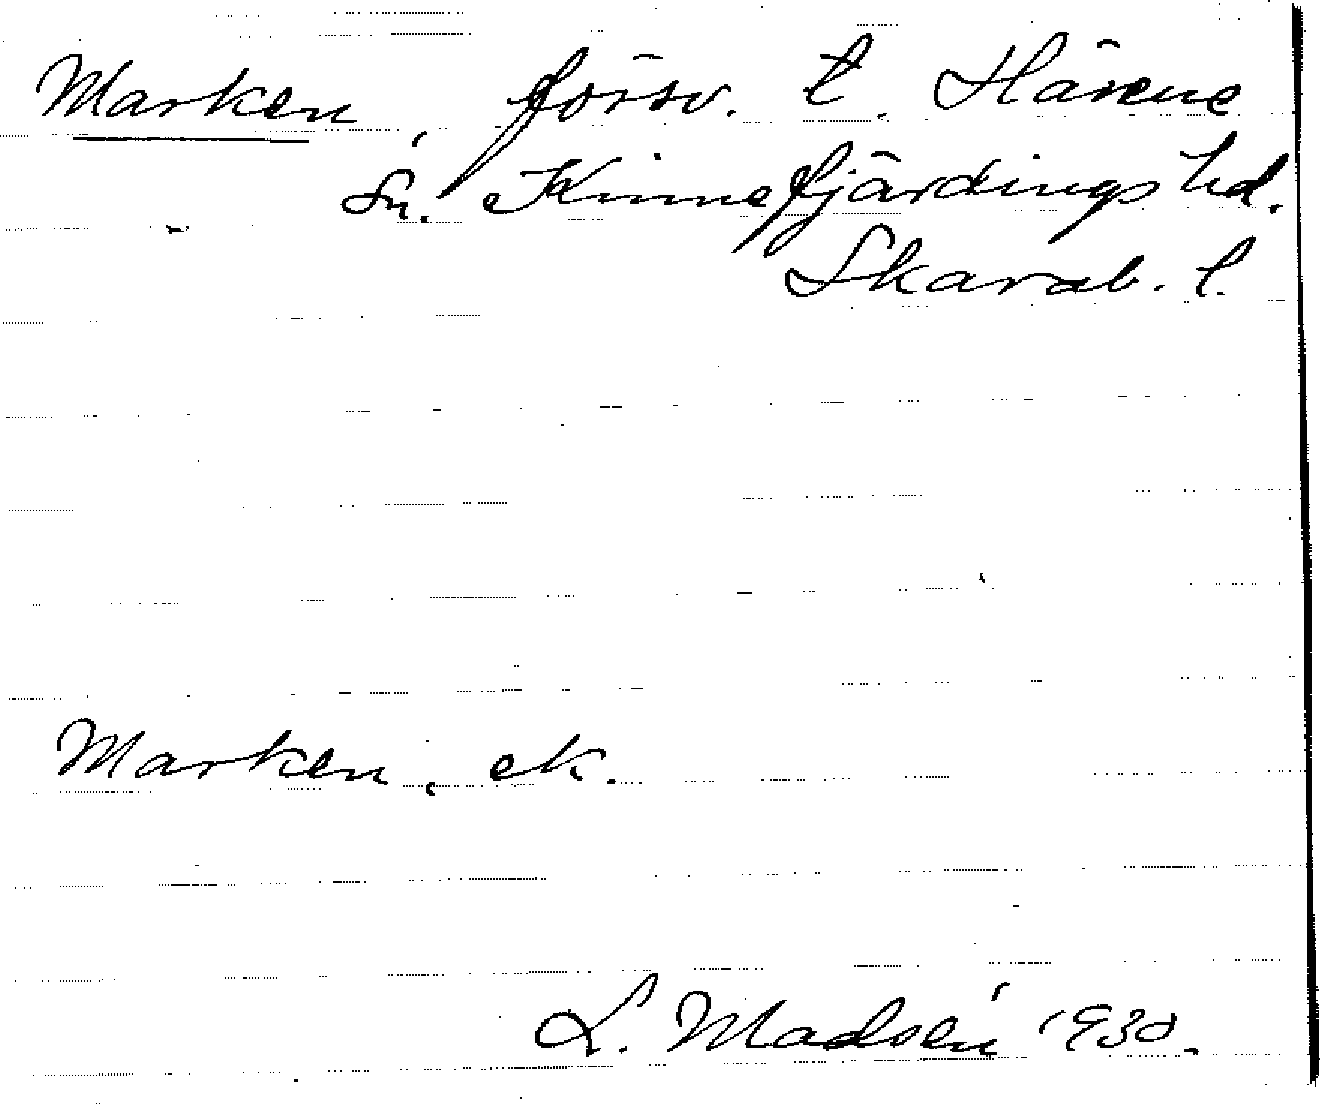 Marken, försv. t. Härene
Sn. Kinnefjärdings hd.
Skarab. l.
Marken, ek.
L. Madsén 1930.